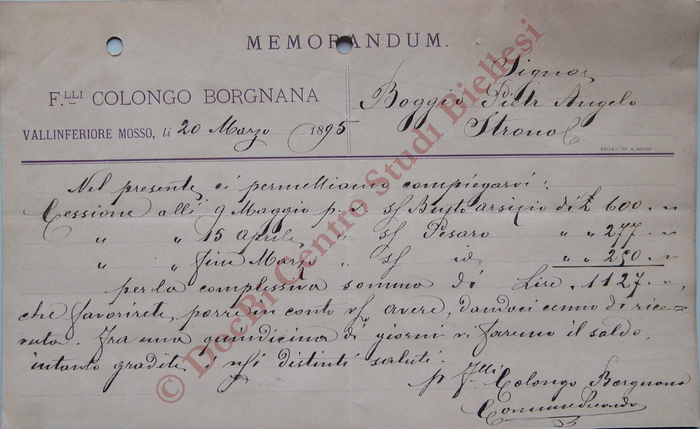 MEMORANDUM.
F.LLI COLONGO BORGNANA
VALLINFERIORE MOSSO, li 20 Marzo 1895
Signor
Boggio Pietr Angelo
Strona
Nel presente ci permettiamo compiegarvi:
Cessione alli 9 Maggio p.v. s/ Busto Arsizio di £ 600. "
" " 15 Aprile " s/ Pesaro " " 277 "
" " fine Marzo " s/ id. " " 250 "
per la complessiva somma di Lire . 1127. "
che favorirete, porre in conto vs/ avere, dandoci cenno di rice-
vuta. Fra una quindicina di giorni vi faremo il saldo,
intanto gradite i nsi distinti saluti.
p Flli Colongo Borgnana
© DocBi Centro Studi Biellesi